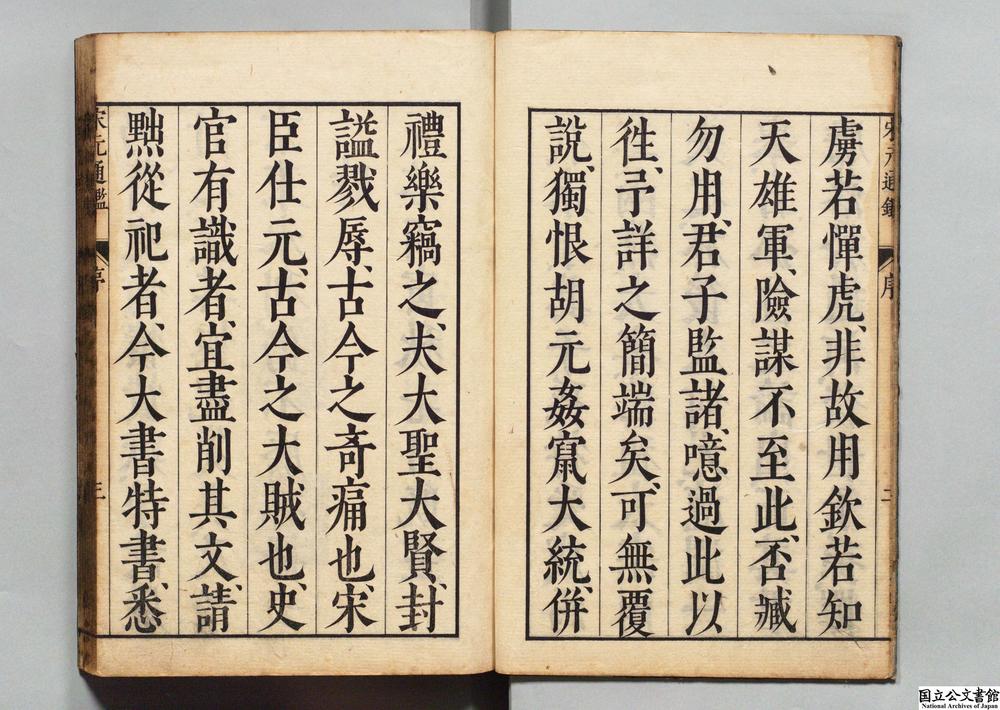 虜若憚虎、非故用欽若知
天雄軍、險謀不至此、否臧
勿用、君子監諸、噫過此以
徃、予詳之簡端矣、可無覆
說、獨恨胡元姦竄大統、併
禮樂竊之、夫大聖大賢、封
謚戮辱、古今之奇痛也、宋
臣仕元、古今之大賊也、史
官有識者、宜盡削其文、請
黜從祀者、今大書特書、悉
宋元通鑑 序 三
国立公文書館
National Archives of Japan